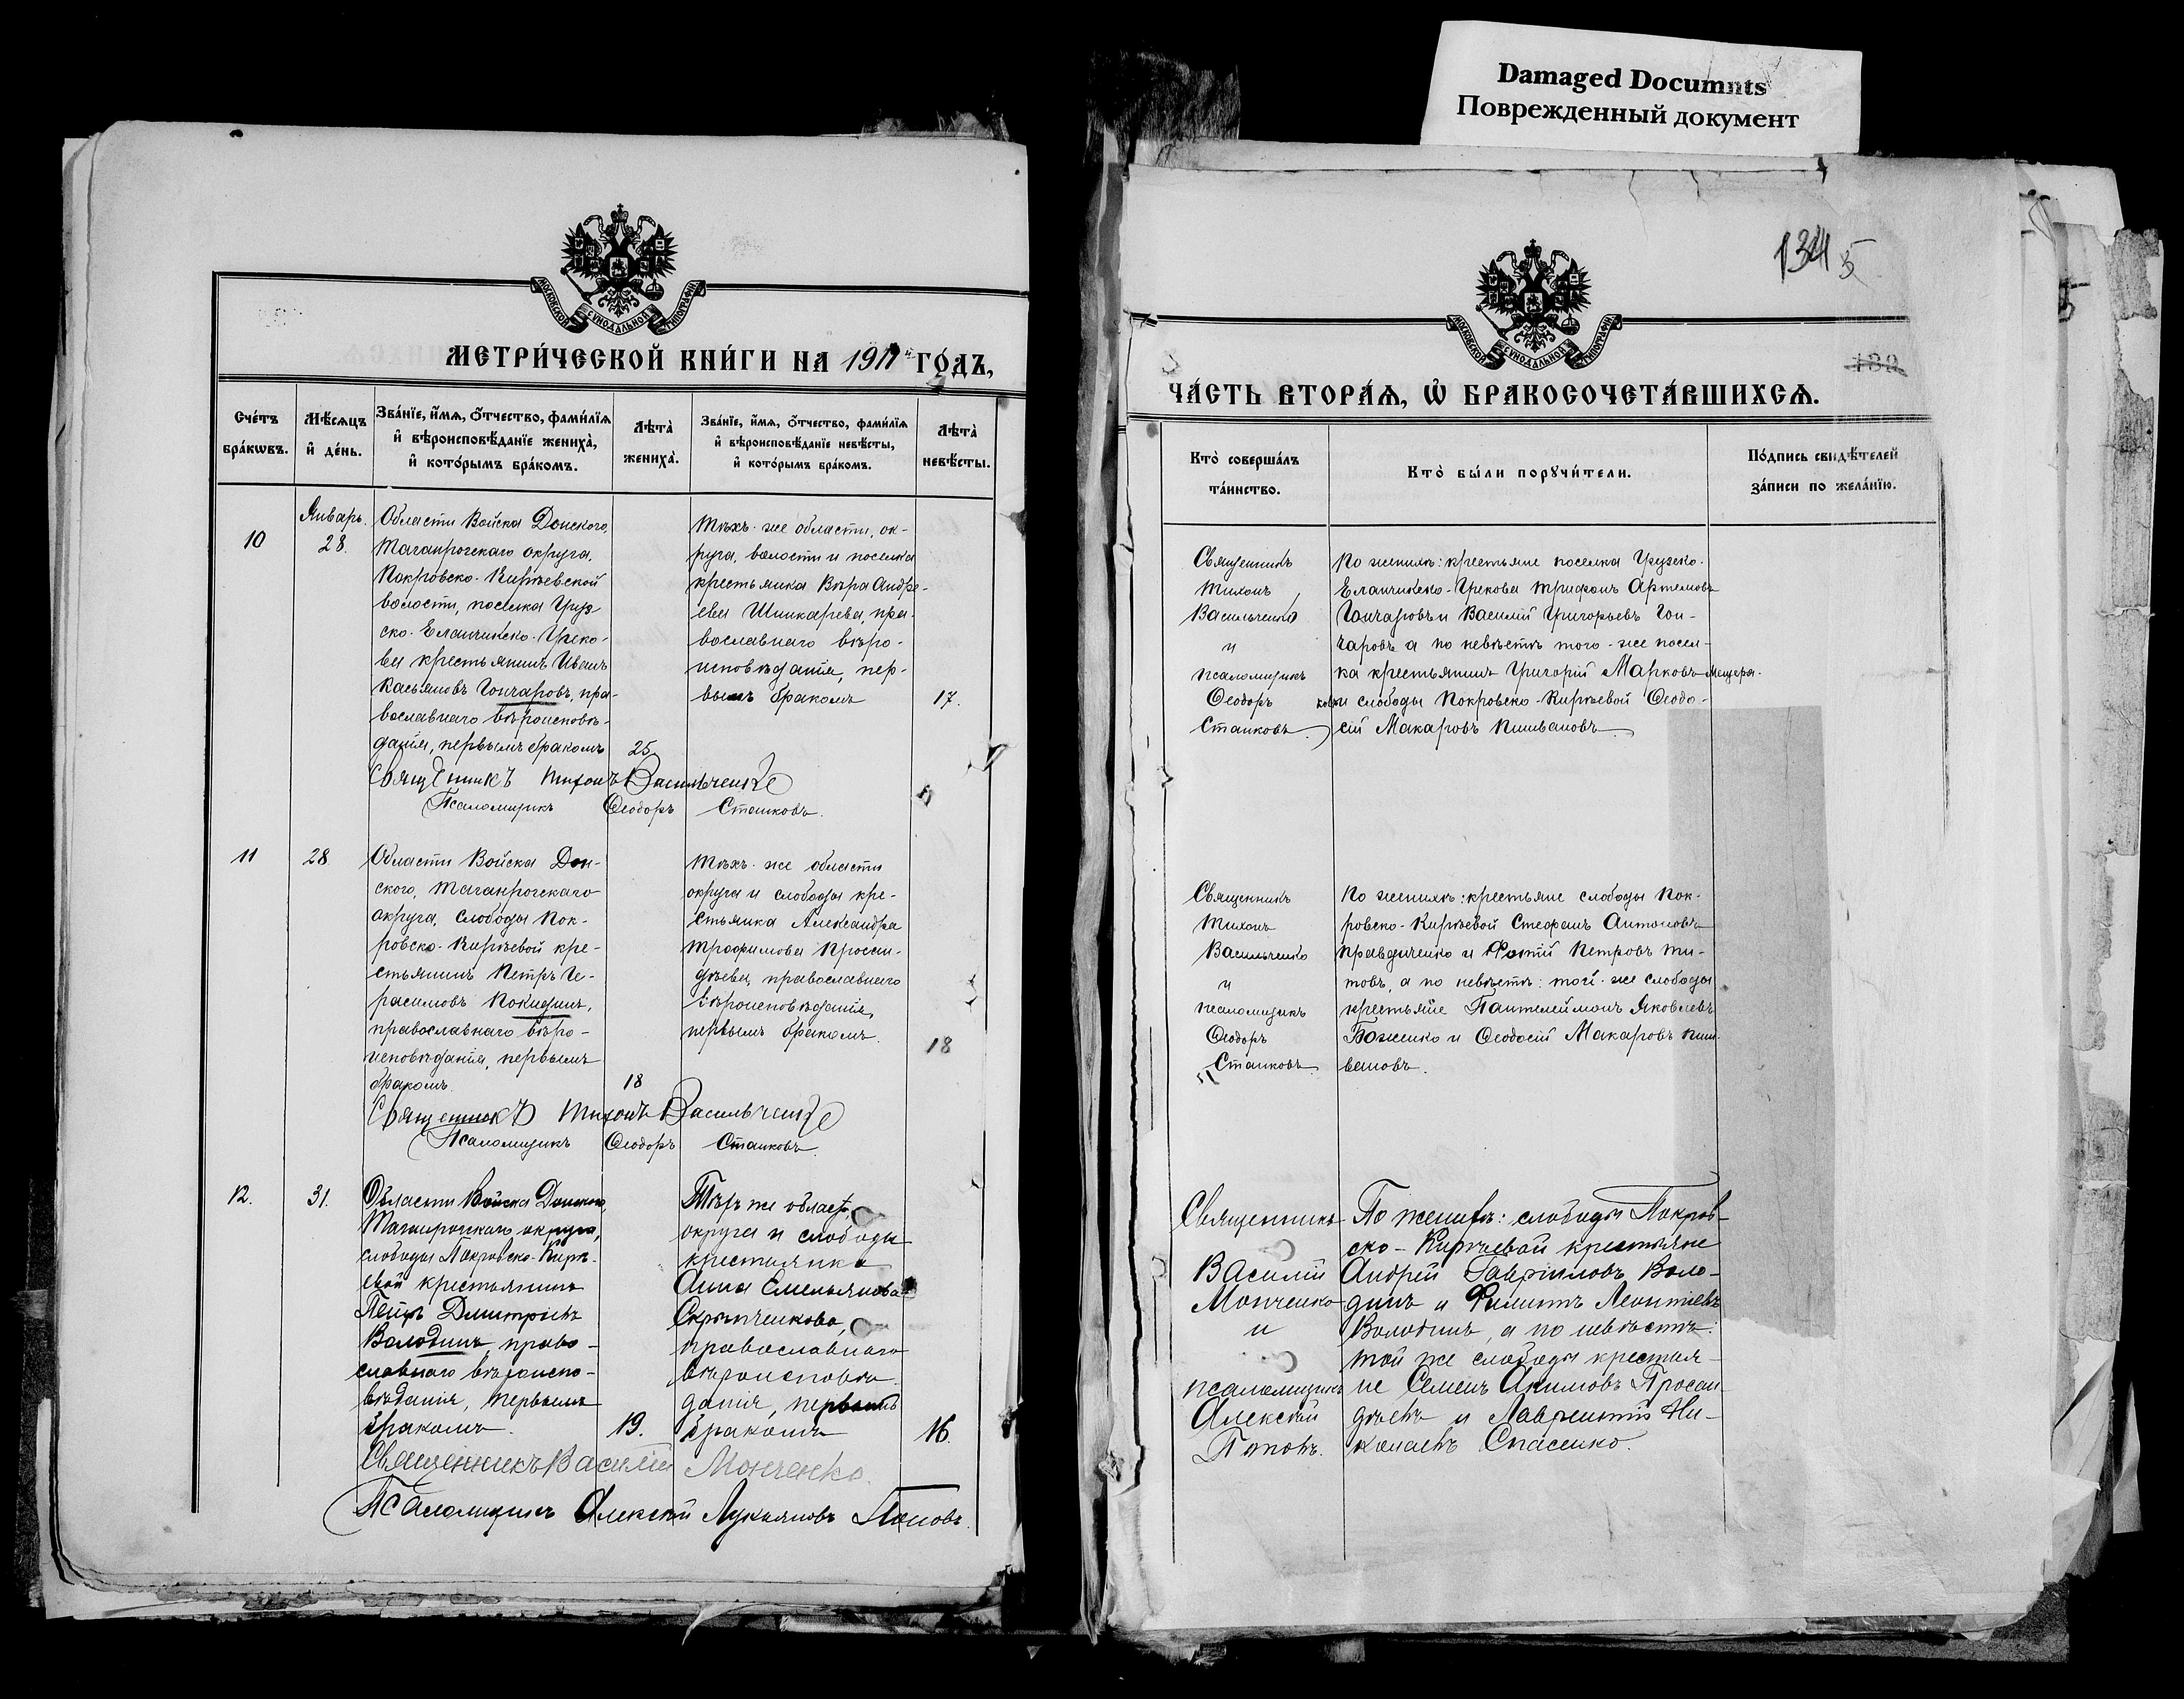 Damaged Documnts
Поврежденный документ
МОСКОВСКОЙ СѴНОДАЛЬНОЙ ТИПОГРАФІИ
МЕТРИ́ЧЕСКОЙ КНИ́ГИ НА 1911й ГО́ДЪ,
Сче́тъ бра́кѡвъ.
Мѣ́сѧцъ и҆ де́нь.
Зва́нїе, и҆́мѧ, ѻ҆́тчество, фами́лїѧ
и҆ вѣроисповѣ́данїе жениха̀,
и҆ кото́рымъ бра́комъ.
Лѣта̀ жениха̀.
Зва́нїе, и҆́мѧ, ѻ҆́тчество, фами́лїѧ
и҆ вѣроисповѣ́данїе невѣ́сты,
и҆ кото́рымъ бра́комъ.
Лѣта̀ невѣ́сты.
10
Январь.
28.
Области Войска Донского,
Таганрогскаго округа,
Покровско-Кирѣевской
волости, поселка Груз-
ско-Еланчикско-Греко-
ва крестьянинъ Иванъ
Касьяновъ Гончаровъ, пра-
вославнаго вѣроисповѣ-
данія, первымъ бракомъ
25
Тѣхъ-же области, ок-
руга, волости и поселка
крестьянка Вѣра Андре-
ева Шинкарева, пра-
вославнаго вѣро-
исповѣданія, пер-
вымъ бракомъ
17.
Священникъ Тихонъ Васильченко
Псаломщикъ Ѳеодоръ Станковъ.
11
28
Области Войска Дон-
ского, Таганрогскаго
округа, слободы Пок-
ровско-Кирѣевой кре-
стьянинъ Петръ Ге-
расимовъ Покидинъ,
православнаго вѣро-
исповѣданія, первымъ
бракомъ.
18
Тѣхъ-же области
округа и слободы кре-
стьянка Александра
Трофимова Просан-
дѣева, православнаго
вѣроисповѣданія,
первымъ бракомъ.
18
Священникъ Тихонъ Васильченко
Псаломщикъ Ѳеодоръ Станковъ.
12.
31.
Области Войска Донского,
Таганрогскаго округа,
слободы Покровско-Кирѣ-
евой крестьянинъ
Петръ Дмитріевъ
Володинъ, право-
славнаго вѣроиспо-
вѣданія, первымъ
бракомъ.
19.
Тѣхъ же област.
округа и слободы
крестьянка
Анна Емельянова
Скрыпченкова,
православнаго
вѣроисповѣ-
данія, первымъ
бракомъ
16.
Священникъ Василій Монченко.
Псаломщикъ Алексѣй Лукьяновъ Поповъ.
134 5
МОСКОВСКОЙ СѴНОДАЛЬНОЙ ТИПОГРАФІИ
ЧА́СТЬ ВТОРА́Ѧ, Ѡ҆ БРАКОСОЧЕТА́ВШИХСѦ.
Кто̀ соверша́лъ та́инство.
Кто̀ бы́ли порꙋчи́тели.
По́дпись свидѣ́телей
за́писи по жела́нїю.
Священникъ
Тихонъ
Васильченко
и
псаломщикъ
Ѳеодоръ
Станковъ.
По женихѣ: крестьяне поселка Грузско-
Еланчикско-Грекова Трифонъ Артемовъ
Гончаровъ и Василій Григорьевъ Гон-
чаровъ а по невѣстѣ того-же посел-
ка крестьянинъ Григорій Марковъ Мещеря-
ковъ и слободы Покровско-Кирѣевой Ѳеодо-
сій Макаровъ Пишвановъ.
Священникъ
Тихонъ
Васильченко
и
псаломщикъ
Ѳеодоръ
Станковъ.
По женихѣ: крестьяне слободы Пок-
ровско-Кирѣевой Стефанъ Антоновъ
Правдиченко и Фотій Петровъ Ти-
товъ, а по невѣстѣ: той-же слободы
крестьяне Пантелеймонъ Яковлевъ
Боженко и Ѳеодосій Макаровъ Пиш-
вановъ.
Священникъ
Василій
Монченко
и
псаломщикъ
Алексѣй
Поповъ.
По женихѣ: слободы Покров-
ско-Кирѣевой крестьяне
Андрей Гавріиловъ Воло-
динъ и Филиппъ Леонтіевъ
Володинъ, а по невѣстѣ:
той же слободы крестья-
не Семенъ Акимовъ Просан-
дѣевъ и Лаврентій Ни-
колаевъ Спасенко.